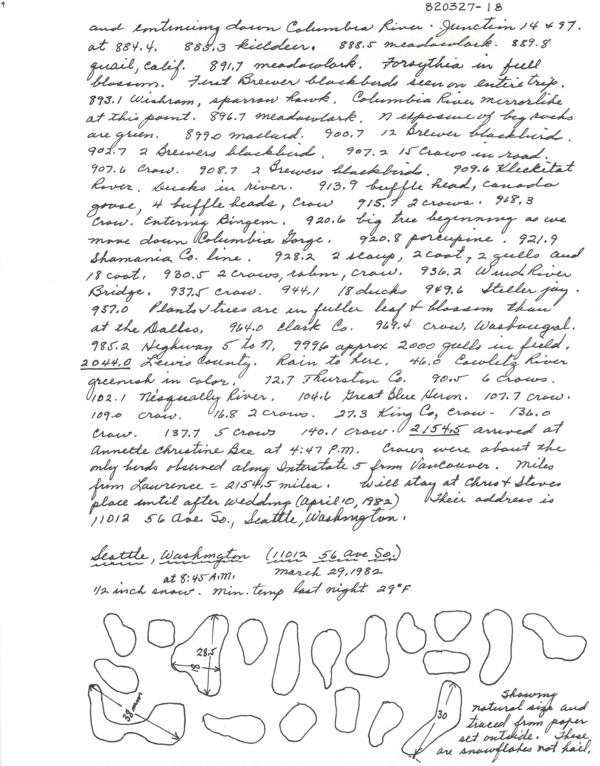 820327-18
and continuing down Columbia River. Junction 14 & 97.
at 884.4. 888.3 killdeer. 888.5 meadowlark. 889.8
quail, calif. 891.7 meadowlark. Forsythia in full
blossom. First Brewer blackbirds seen on entire trip.
893.1 Wishram, sparrow hawk. Columbia River mirrorlike
at this point. 896.7 meadowlark. N exposure of big rocks
are green. 899.0 mallard. 900.7 12 Brewer blackbird.
902.7 2 Brewers blackbird. 907.2 15 Crows in road.
907.6 Crow. 908.7 2 Brewers blackbirds. 909.6 Klickitat
River. Ducks in river. 913.9 buffle head, canada
goose, 4 buffle heads, crow 915.7 2 crows. 968.3
Crow. Entering Bingem. 920.6 big tree beginning as we
move down Columbia Gorge. 920.8 porcupine. 921.9
Skamania Co. line. 928.2 2 scaup, 2 coot, 2 gulls and
18 coot. 930.5 2 crows, robin, crow. 936.2 Wind River
Bridge. 937.5 crow. 944.1 18 ducks 949.6 Steller jay.
957.0 Plants & trees are in fuller leaf & blossom than
at the Dalles. 964.0 Clark Co. 969.4 crow, Washougal.
985.2 Highway 5 to N, 999.6 approx 2000 gulls in field.
2044.0 Lewis County. Rain to here. 46.0 Cowlitz River
greenish in color. 72.7 Thurston Co. 90.5 6 crows.
102.1 Nesqually River. 104.6 Great Blue Heron. 107.7 crow.
109.0 crow. 16.8 2 crows. 27.3 King Co, Crow - 136.0
Crow. 137.7 5 crows 140.1 crow. 2154.5 arrived at
Annette Christine Bee at 4:47 P.M. Crows were about the
only birds observed along Interstate 5 from Vancouver. Miles
from Lawrence = 2154.5 miles. Will stay at Chris & Steves
place until after wedding (April 10, 1982) Their address is
11012 56 Ave. So., Seattle, Washington.
Seattle, Washington (11012 56 Ave So.)
at 8:45 A.M. March 29, 1982
1/2 inch snow. min. temp last night 29°F
28.5
18
38 mm
30
Showing
natural size and
traced from paper
set outside. These
are snowflakes not hail.